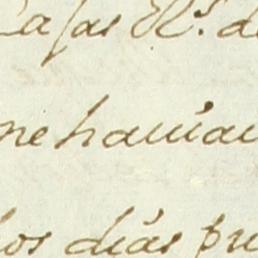 Casas R.^s de
me haviau
los dias pre